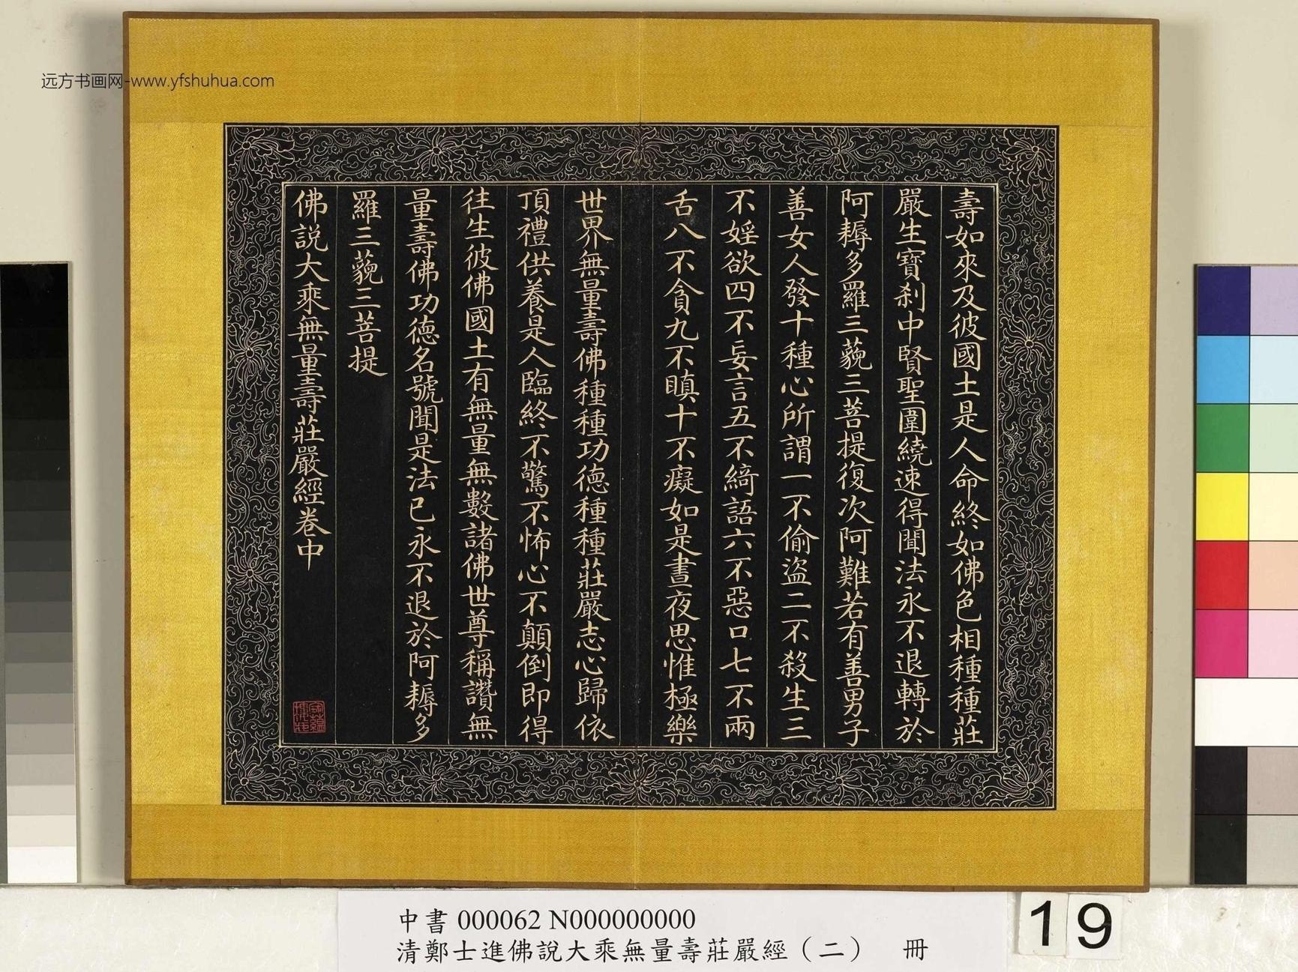 远方书画网-www.yfshuhua.com
壽如來及彼國土是人命終如佛色相種種莊
嚴生寶剎中賢聖圍繞速得聞法永不退轉於
阿耨多羅三藐三菩提復次阿難若有善男子
善女人發十種心所謂一不偷盜二不殺生三
不婬欲四不妄言五不綺語六不惡口七不兩
舌八不貪九不瞋十不癡如是晝夜思惟極樂
世界無量壽佛種種功德種種莊嚴志心歸依
頂禮供養是人臨終不驚不怖心不顛倒即得
往生彼佛國土有無量無數諸佛世尊稱讚無
量壽佛功德名號聞是法已永不退於阿耨多
羅三藐三菩提
佛說大乘無量壽莊嚴經卷中
中書 000062 N000000000
清鄭士進佛說大乘無量壽莊嚴經（二） 冊
19